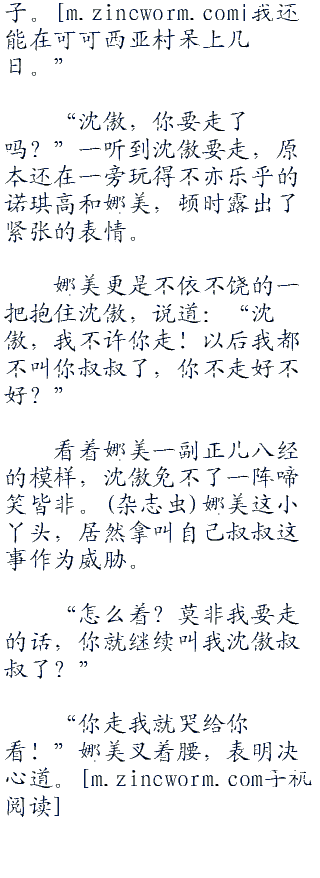 子。[m.zincworm.com|我还
能在可可西亚村呆上几
日。”
“沈傲，你要走了
吗？”一听到沈傲要走，原
本还在一旁玩得不亦乐乎的
诺琪高和娜美，顿时露出了
紧张的表情。
娜美更是不依不饶的一
把抱住沈傲，说道：“沈
傲，我不许你走！以后我都
不叫你叔叔了，你不走好不
好？”
看着娜美一副正儿八经
的模样，沈傲免不了一阵啼
笑皆非。(杂志虫)娜美这小
丫头，居然拿叫自己叔叔这
事作为威胁。
“怎么着？莫非我要走
的话，你就继续叫我沈傲叔
叔了？”
“你走我就哭给你
看！”娜美叉着腰，表明决
心道。[m.zincworm.com手机
阅读]